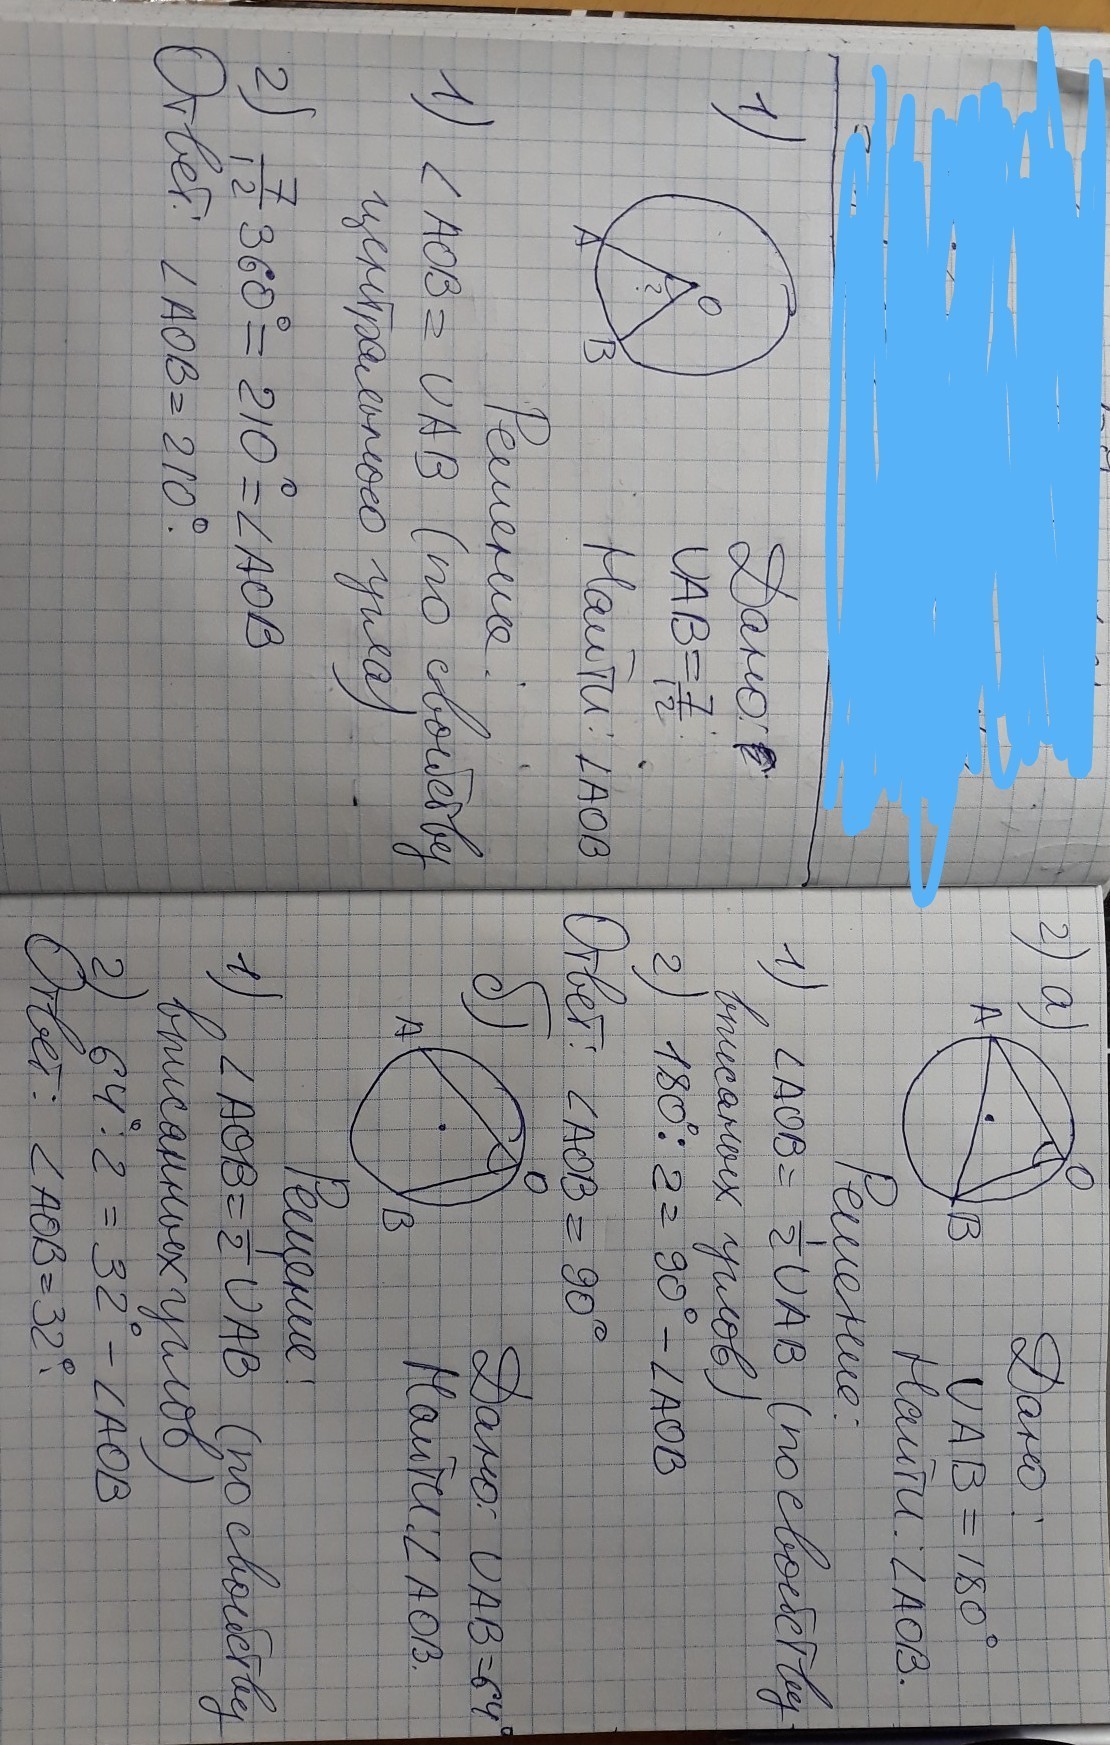 1)
O
?
A
B
Дано:
∪AB = 7/12
Найти: ∠AOB
Решение:
1) ∠AOB = ∪AB (по свойству
центрального угла)
2) 7/12 360° = 210° = ∠AOB
Ответ: ∠AOB = 210°.
2) а)
A
O
B
Дано:
∪AB = 180°
Найти: ∠AOB.
Решение:
1) ∠AOB = 1/2 ∪AB (по свойству
вписаных углов)
2) 180° : 2 = 90° – ∠AOB
Ответ: ∠AOB = 90°
б)
A
O
B
Дано: ∪AB = 64°
Найти: ∠AOB.
Решение:
1) ∠AOB = 1/2 ∪AB (по свойству
вписанных углов)
2) 64° : 2 = 32° – ∠AOB
Ответ: ∠AOB = 32°.